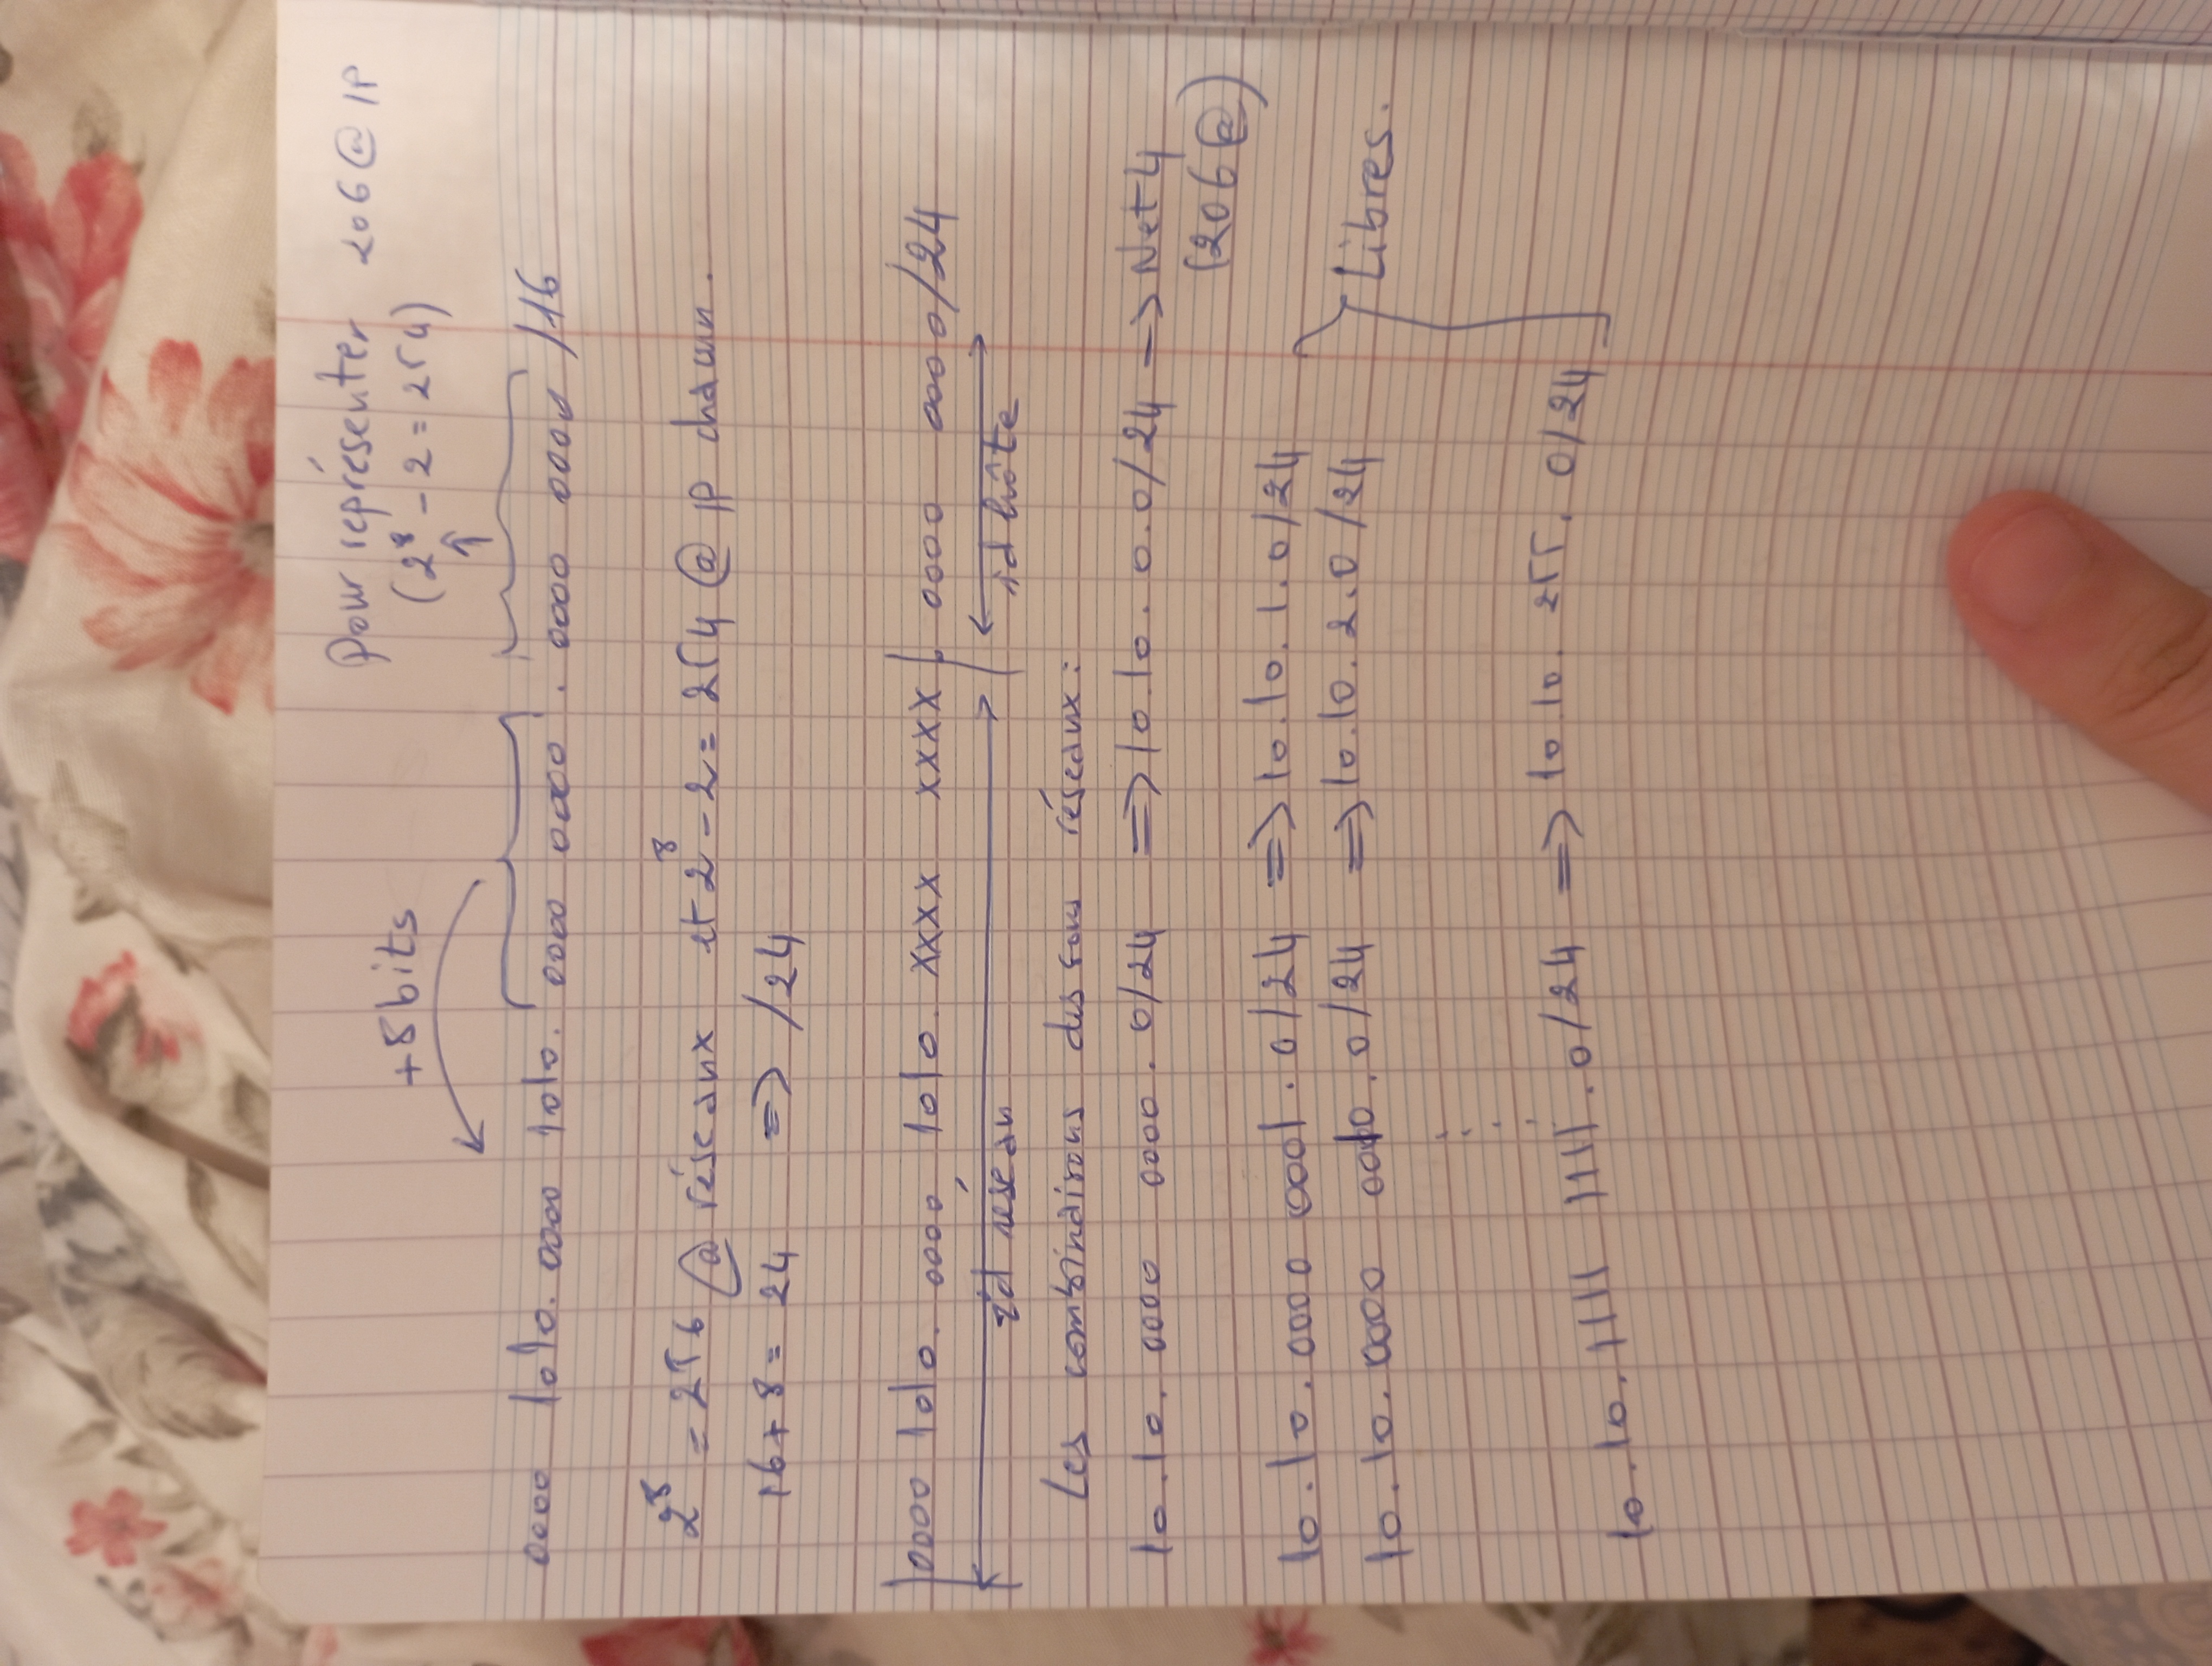 Pour représenter 206 @ IP
+8 bits
(2⁸ - 2 = 254)
0000 1010. 0000 1010. 0000 0000 . 0000 0000 /16
2⁸ = 256 @ réseaux et 2⁸ - 2 = 254 @ IP chacun.
16 + 8 = 24 => /24
0000 1010. 0000 1010. XXXX XXXX . 0000 0000/24
id réseau id hôte
Les combinaisons des sous réseaux :
10.10. 0000 0000 . 0/24 => 10.10. 0.0/24 -> Net 4
(206 @)
10.10. 0000 0001 . 0/24 => 10.10. 1.0/24
10.10. 0000 0010 . 0/24 => 10.10. 2.0 /24
Libres.
10.10. 1111 1111 . 0/24 => 10.10. 255. 0/24